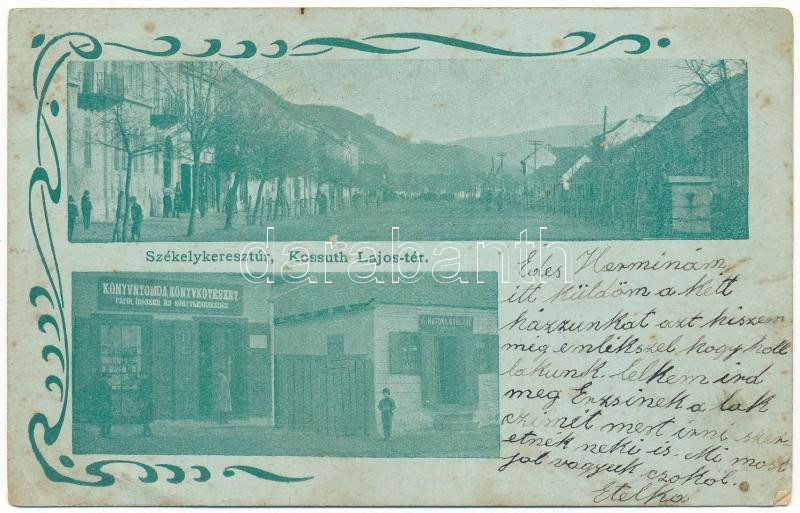 Székelykeresztúr, Kossuth Lajos-tér.
KÖNYVNYOMDA, KÖNYVKÖTÉSZET
PAPIR, ÍRÓSZER ÉS KÖNYVKERESKEDÉS
KATONA
darabanth
Édes Herminám
itt küldöm a kétt
házzunkat azt hiszem
még emlékszel hogy holl
lakunk. Lelkem ird
meg Erzsinek a lak
czimét mert irni szer
etnék neki is. Mi most
jol vagyuk czokol.
Etelka